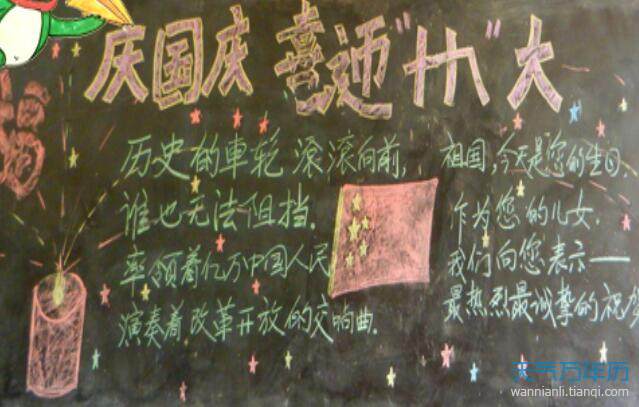 庆国庆 喜迎"十八"大
历史的車轮 滚滚向前,
谁也无法阻挡.
率领着亿万中国人民
演奏着改革开放的交响曲.
祖国,今天是您的生日.
作为您的儿女.
我们向您表示——
最热烈最诚挚的祝
天气万年历
wannianli.tianqi.com